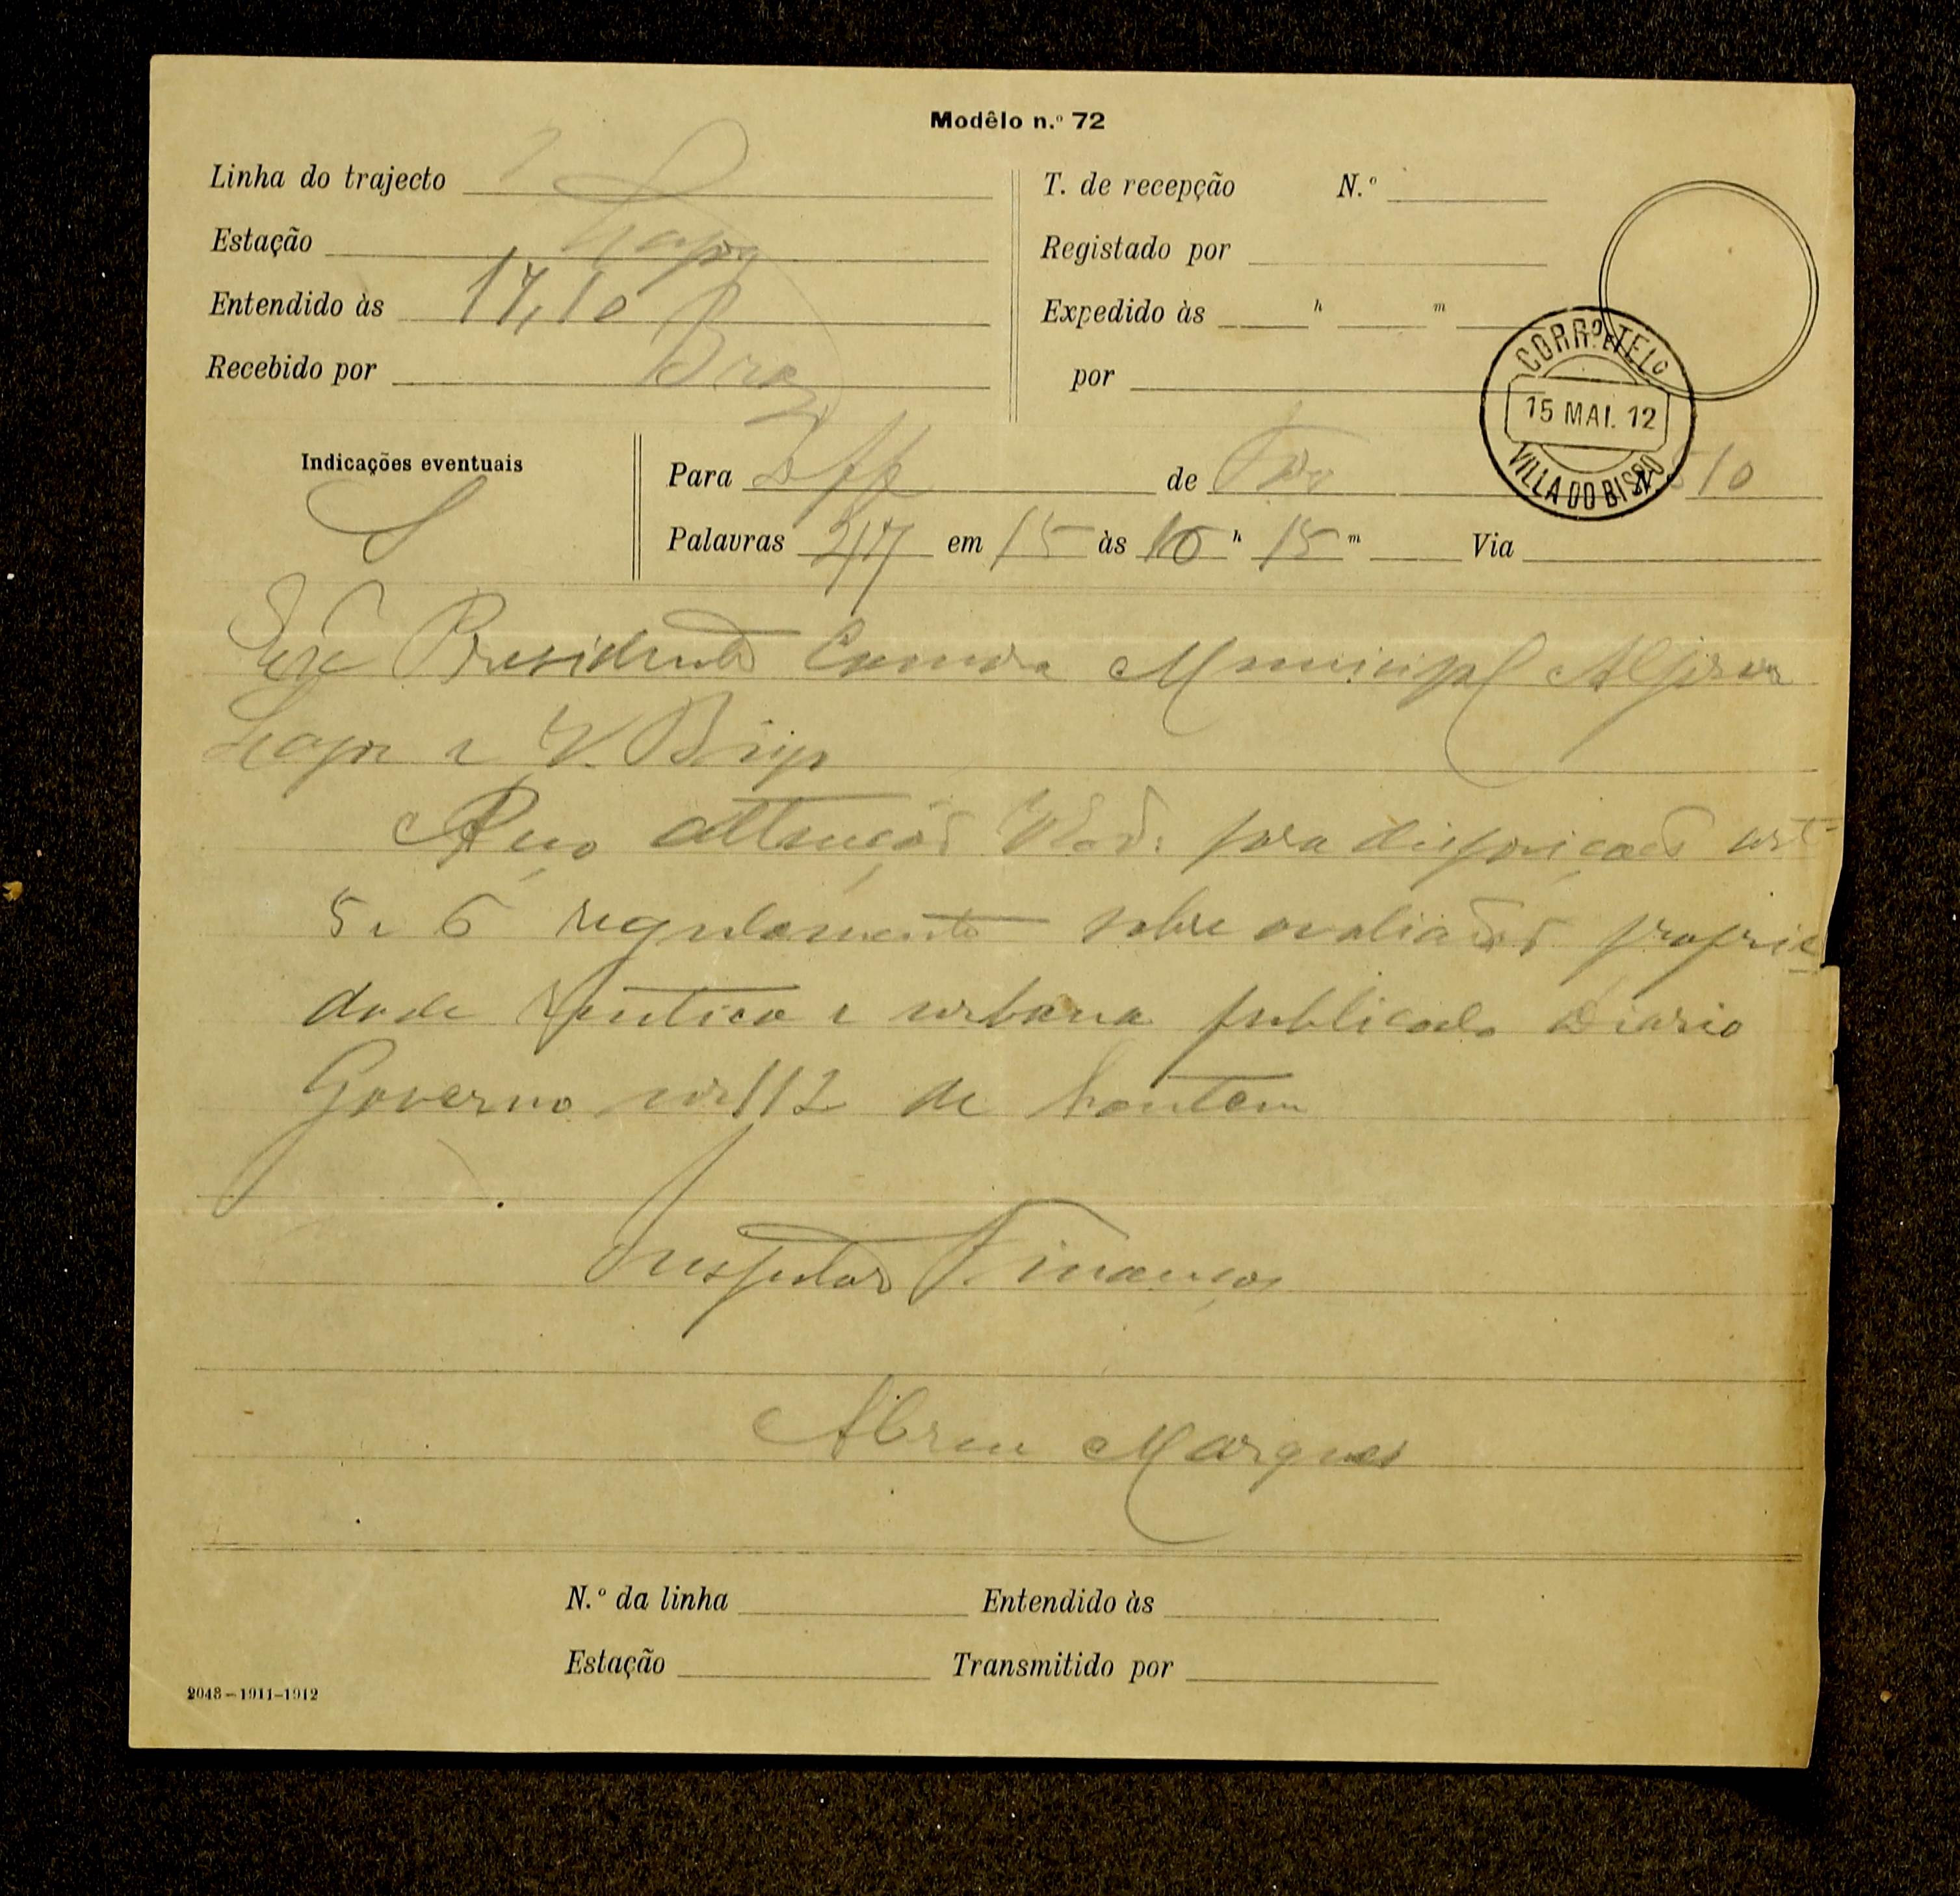 Modêlo n.º 72
Linha do trajecto
Estação Lagos
Entendido às 17,10
Recebido por Braz
T. de recepção N.º
Registado por
Expedido às h m
por
CORR.º E TEL.º
15 MAI. 12
VILLA DO BISPO
Indicações eventuais
S
Para de Faro 510
Palavras 27 em 15 às 16 h 15 m Via
Presidente Camara Municipal Aljezur
Lagos e V. Bispo
Peço attenção para disposições art
5 e 6 regulamento sobre avaliações proprie
dade rustica e urbana publicado Diario
Governo nr 112 de hontem
Inspector Finanças
Abreu Marques
N.º da linha Entendido às
Estação Transmitido por
2048–1911–1912